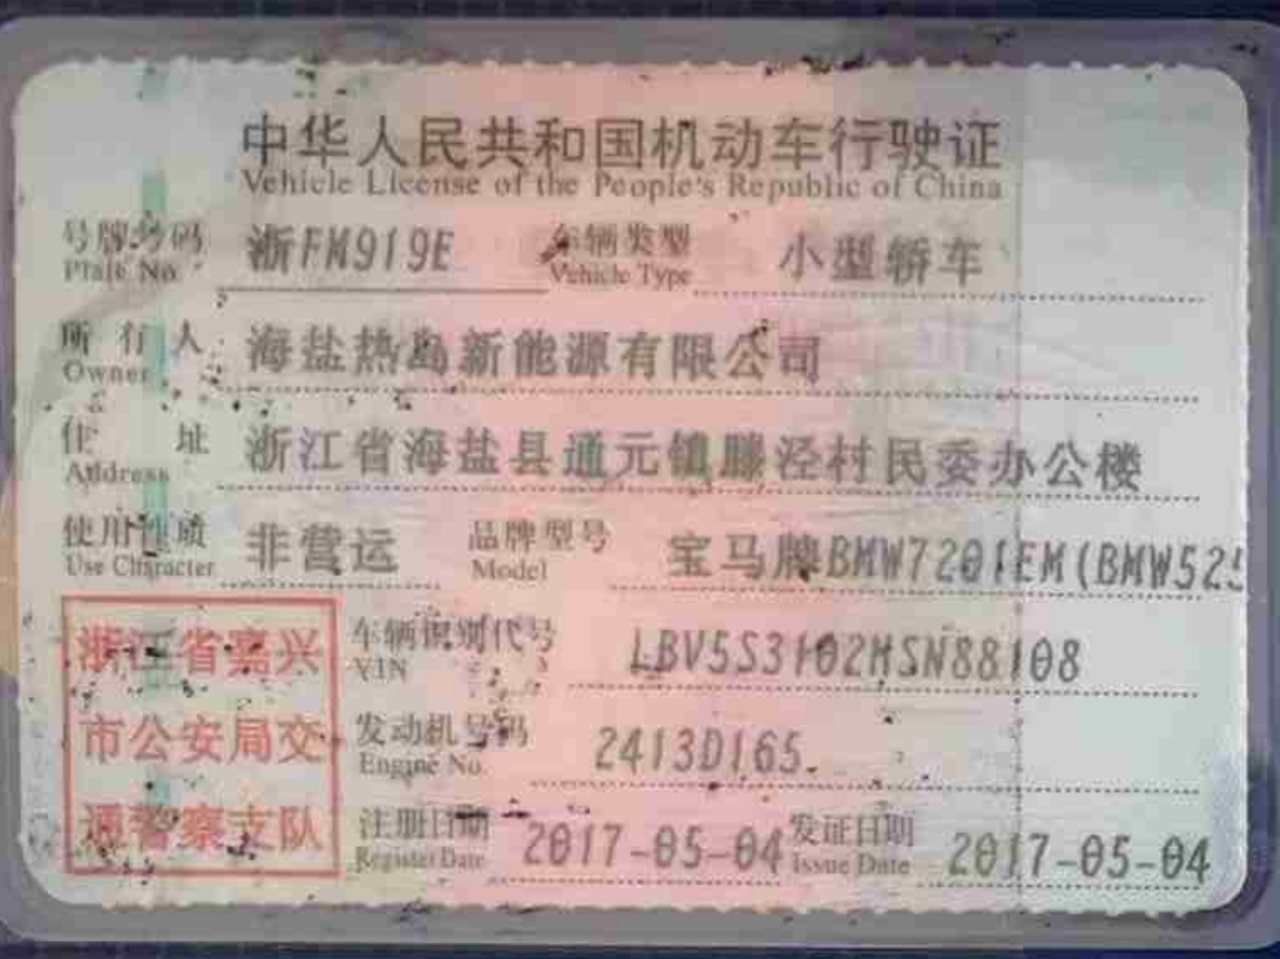 中华人民共和国机动车行驶证
Vehicle License of the People's Republic of China
号牌号码 浙FM919E 车辆类型 小型轿车
Plate No. Vehicle Type
所有人 海盐热岛新能源有限公司
Owner
住址 浙江省海盐县通元镇滕泾村民委办公楼
Address
使用性质 非营运 品牌型号 宝马牌BMW7201EM(BMW525
Use Character Model
浙江省嘉兴
市公安局交
通警察支队
车辆识别代号 LBV5S3102HSN88108
VIN
发动机号码 2413D165.
Engine No.
注册日期 2017-05-04 发证日期 2017-05-04
Register Date Issue Date